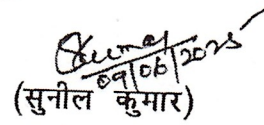 09/06/2025
(सुनील कुमार)